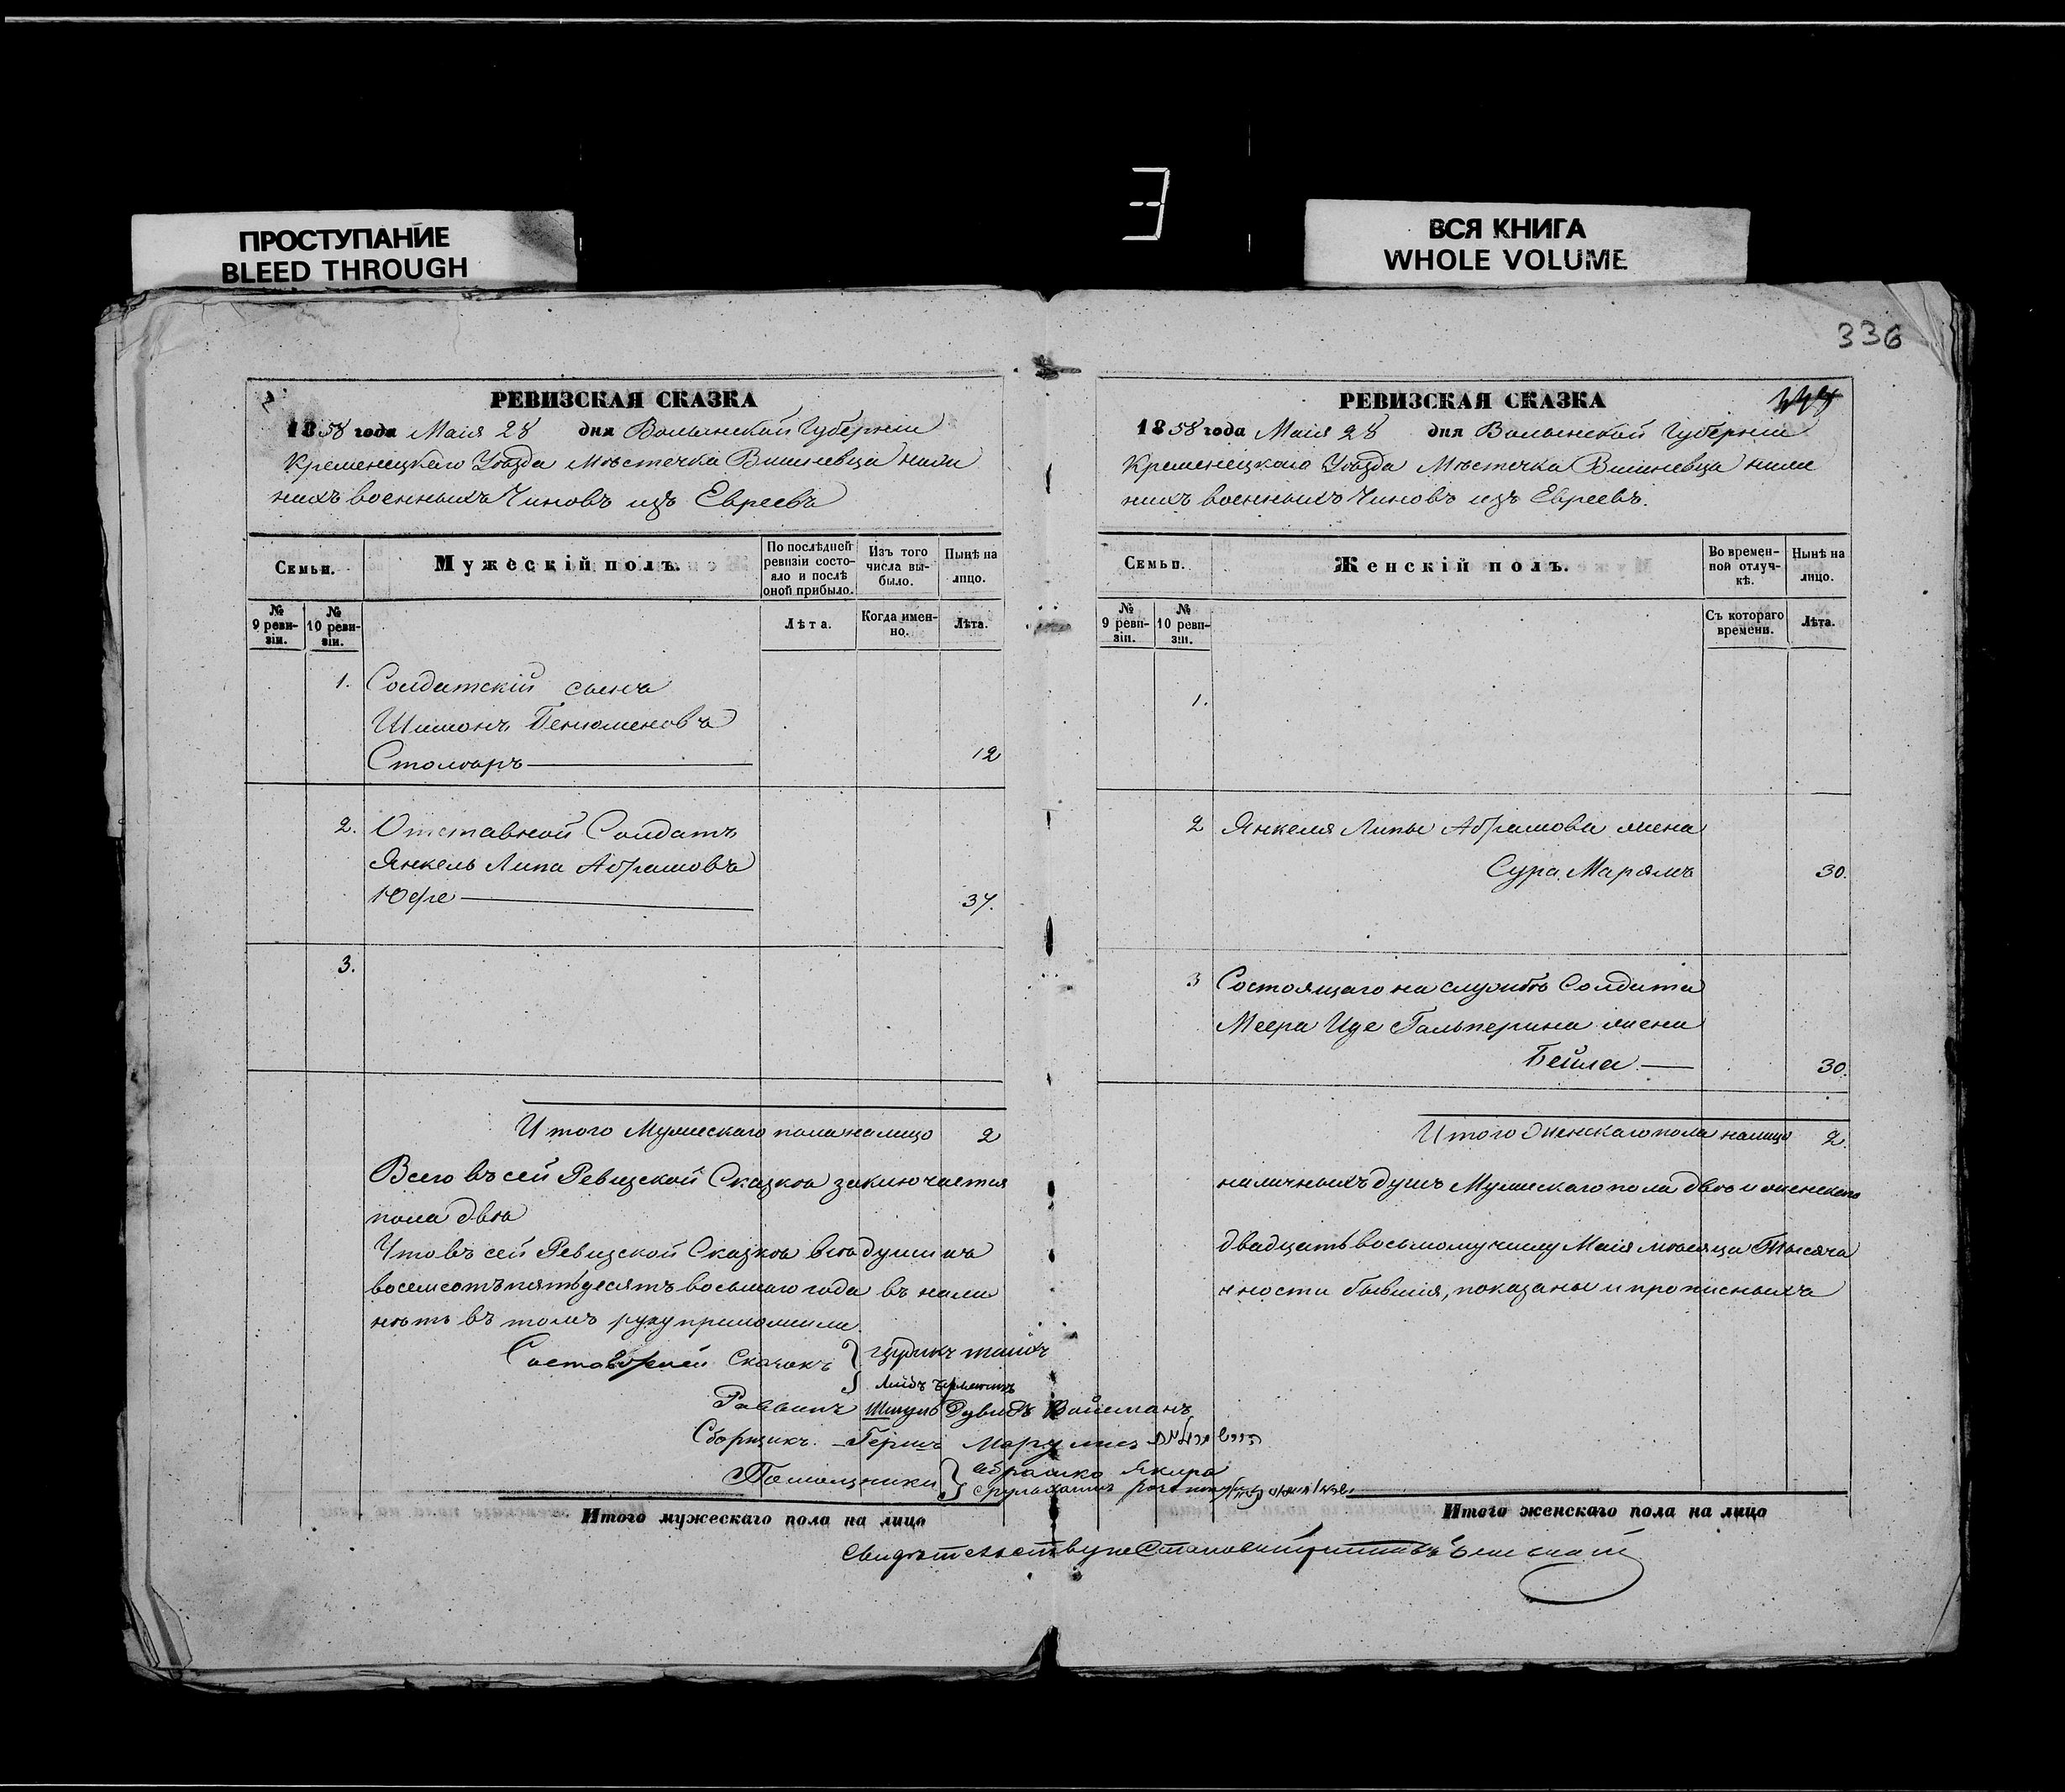 ПРОСТУПАНИЕ
BLEED THROUGH
ВСЯ КНИГА
WHOLE VOLUME
336
РЕВИЗСКАЯ СКАЗКА
1858 года Маія 28 дня Волынской Губерніи
Кременецкаго Уѣзда Мѣстечка Вишневца ниж
нихъ военныхъ Чиновъ изъ Евреевъ
Семьи.
Мужескій полъ.
По послѣдней ревизіи состояло и послѣ оной прибыло.
Изъ того числа выбыло.
Нынѣ на лицо.
№ 9 ревизіи.
№ 10 ревизіи.
Лѣта.
Когда именно.
Лѣта.
1. Солдатскій сынъ
Шимонъ Бенюменовъ
Столяръ 12
2. Отставной Солдатъ
Янкель Липа Абрамовъ
37.
3.
Итого Мужескаго пола налицо 2
Всего въ сей Ревизской Сказкѣ заключается
пола двѣ
Что въ сей Ревизской Сказкѣ всѣ души къ
восемсотъ пятьдесятъ восьмаго года въ нали
нѣтъ въ томъ руку приложили.
Сказокъ
Раввинъ Шмуль Дувидъ Вайсманъ
Сборщикъ. Гершъ
Помощники Абрамко Якира
Итого мужескаго пола на лицо
РЕВИЗСКАЯ СКАЗКА
1858 года Маія 28 дня Волынской Губерніи
Кременецкаго Уѣзда Мѣстечка Вишневца ниж
нихъ военныхъ Чиновъ изъ Евреевъ.
Семьи.
Женскій полъ.
Во временной отлучкѣ.
Нынѣ на лицо.
№ 9 ревизіи.
№ 10 ревизіи.
Съ котораго времени.
Лѣта.
1.
2 Янкеля Липы Абрамова жена
Сура Марямъ 30.
3 Состоящаго на службѣ Солдата
Меера Иде Гальперина жена
Бейла 30.
Итого Женскаго пола налицо 2.
наличныхъ душъ Мужескаго пола двѣ и женскаго
двадцать восьмому числу Маія мѣсяца Тысяча
чности бывшія, показаны и прописныхъ
Итого женскаго пола на лицо
Свидѣтельствую Становой Приставъ